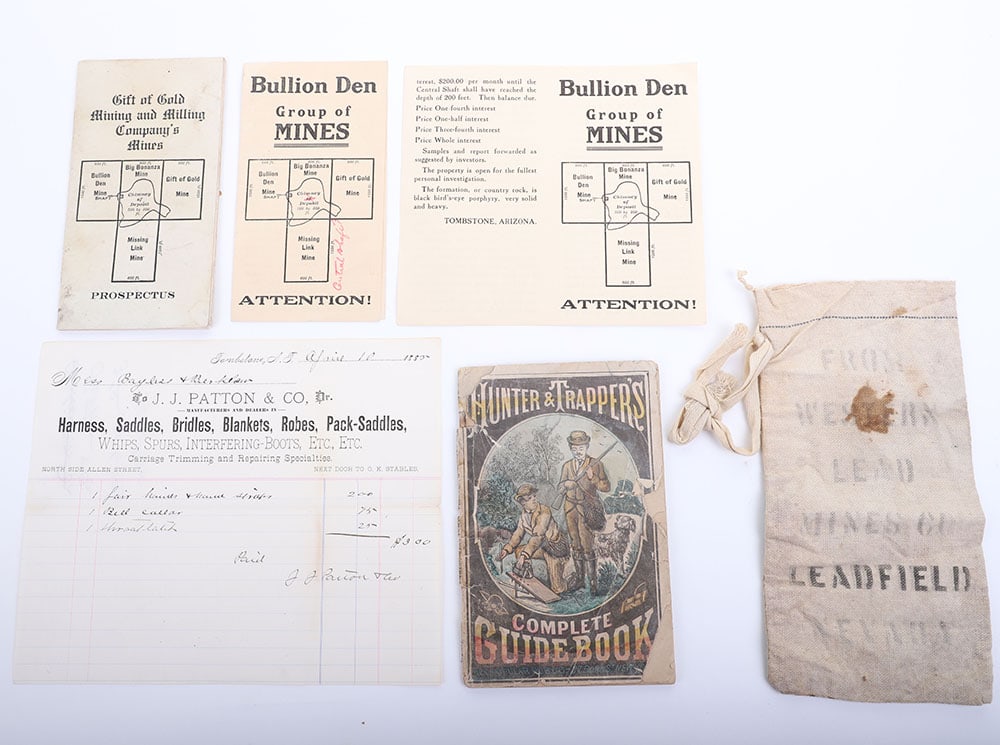 Gift of Gold
Mining and Milling
Company's
Mines
600 ft.
600 ft.
Bullion
Den
Mine
SHAFT
Big Bonanza
Mine
Gift of Gold
Mine
Chimney
of
Deposit
Missing
Link
Mine
600 ft.
PROSPECTUS
Bullion Den
Group of
MINES
Bullion
Den
Mine
SHAFT
Big Bonanza
Mine
Gift of Gold
Mine
Chimney
of
Deposit
Missing
Link
Mine
600 ft.
Central Shaft
ATTENTION!
terest, $200.00 per month until the
Central Shaft shall have reached the
depth of 200 feet. Then balance due.
Price One-fourth interest
Price One-half interest
Price Three-fourth interest
Price Whole interest
Samples and report forwarded as
suggested by investors.
The property is open for the fullest
personal investigation.
The formation, or country rock, is
black bird's-eye porphyry, very solid
and heavy.
TOMBSTONE, ARIZONA.
Bullion Den
Group of
MINES
Bullion
Den
Mine
SHAFT
Big Bonanza
Mine
Gift of Gold
Mine
Chimney
of
Deposit
Missing
Link
Mine
600 ft.
ATTENTION!
Tombstone, A.T. April 10 1885
Mess Bayless &
To J. J. PATTON & CO, Dr.
MANUFACTURERS AND DEALERS IN
Harness, Saddles, Bridles, Blankets, Robes, Pack-Saddles,
WHIPS, SPURS, INTERFERING-BOOTS, ETC., ETC.
Carriage Trimming and Repairing Specialties.
NORTH SIDE ALLEN STREET, NEXT DOOR TO O. K. STABLES.
1 pair hames & hame straps 200
1 Bell collar 75
1 throat latch 25
$3.00
Paid
J J Patton & Co
HUNTER & TRAPPER'S
COMPLETE
GUIDE BOOK
FROM
WESTERN
LEAD
MINES CO
LEADFIELD
NEVADA